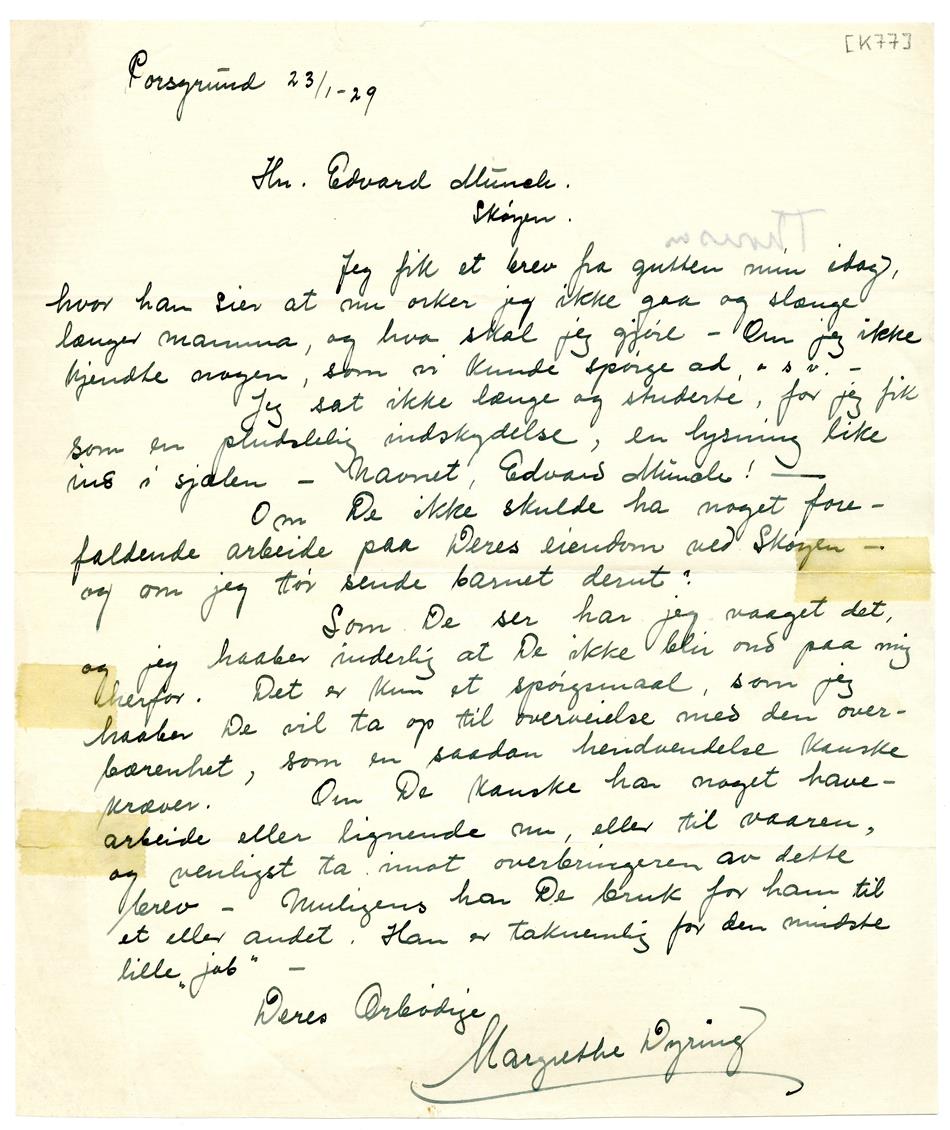 [K77]
Porsgrund 23/1-29
Hr. Edvard Münch.
Skøyen.
Jeg fik et brev fra gutten min idag,
hvor han sier at nu orker jeg ikke gaa og slænge
længer mamma, og hva skal jeg gjøre – Om jeg ikke
kjendte nogen, som vi kunde spørge ad, o s v. –
Jeg sat ikke længe og studerte, for jeg fik
som en pludslelig indskydelse, en lysning like
ind i sjælen – Navnet, Edvard Münch! —
Om De ikke skulde ha noget fore-
faldende arbeide paa Deres eiendom ved Skøyen –
og om jeg tør sende barnet derut?
Som De ser har jeg vaaget det,
og jeg haaber inderlig at De ikke blir ond paa mig
herfor. Det er kun et spørgsmaal, som jeg
haaber De vil ta op til overveielse med den over-
bærenhet, som en saadan hendvendelse kanske
kræver. Om De kanske har noget have-
arbeide eller lignende nu, eller til vaaren,
og venligst ta imot overbringeren av dette
brev – Muligens har De bruk for ham til
et eller andet. Han er taknemlig for den mindste
lille „job" –
Deres Ærbødige
Margrethe Dyring